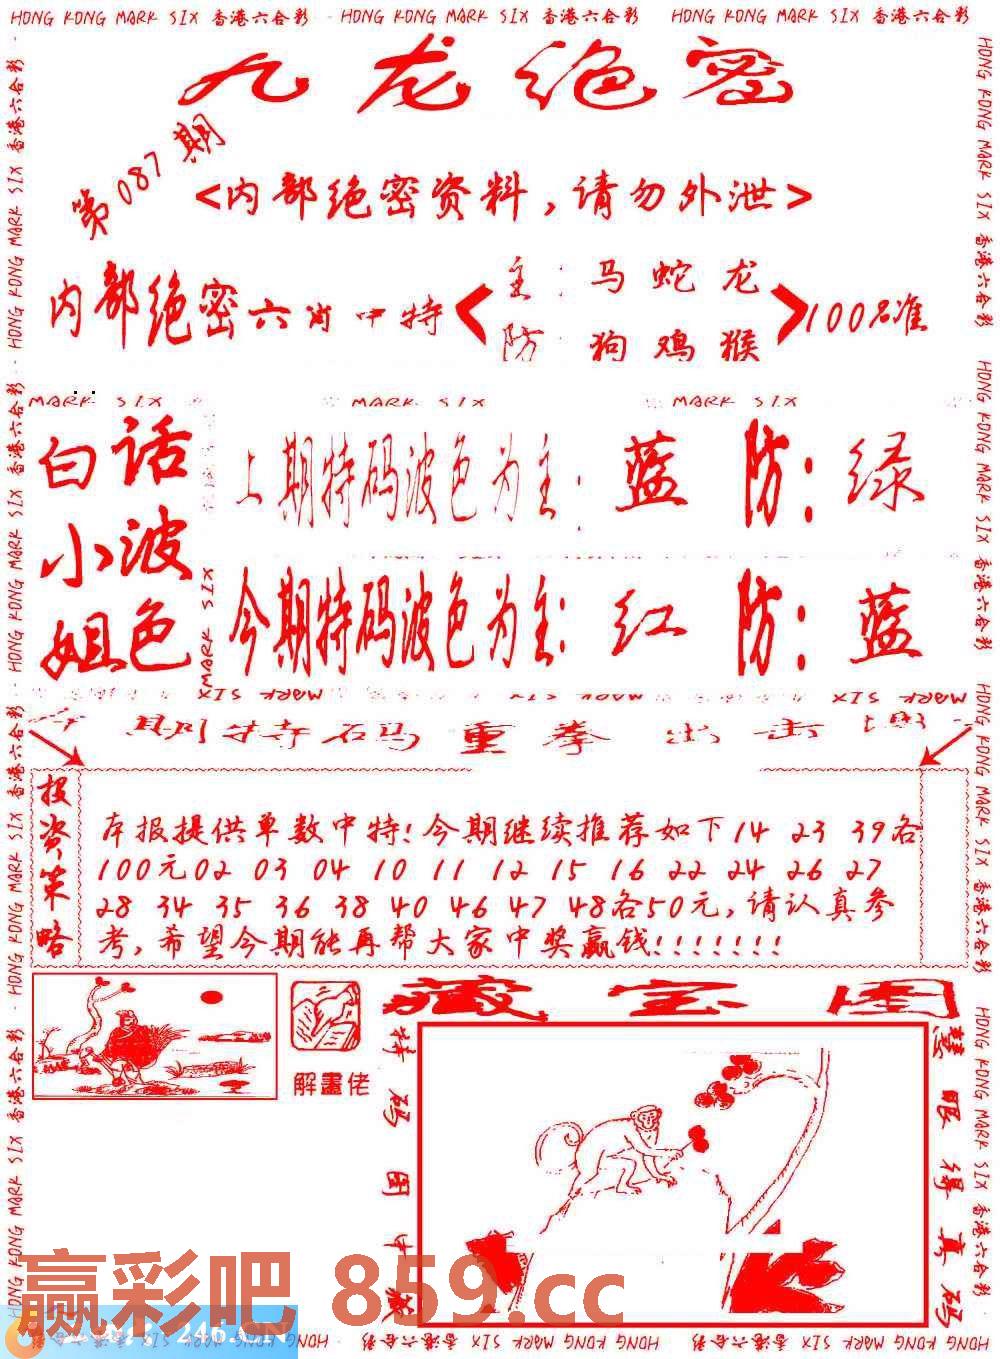 HONG KONG MARK SIX 香港六合彩 HONG KONG MARK SIX 香港六合彩 HONG KONG MARK SIX 香港六合彩
九龙绝密
第087期
<内部绝密资料，请勿外泄>
内部绝密六肖中特
主：马蛇龙
防：狗鸡猴
100%准
MARK SIX MARK SIX MARK SIX
白话
小波
姐色
上期特码波色为主：蓝 防：绿
今期特码波色为主：红 防：蓝
MARK SIX MARK SIX MARK SIX
期特码重拳出击
投资策略
本报提供单数中特！今期继续推荐如下14 23 39各
100元02 03 04 10 11 12 15 16 22 24 26 27
28 34 35 36 38 40 46 47 48各50元，请认真参
考，希望今期能再帮大家中奖赢钱！！！！！！！
藏宝图
解畫佬
特码图中
慧眼得真码
赢彩吧 859.cc
246.CN
HONG KONG MARK SIX 香港六合彩 HONG KONG MARK SIX 香港六合彩 HONG KONG MARK SIX